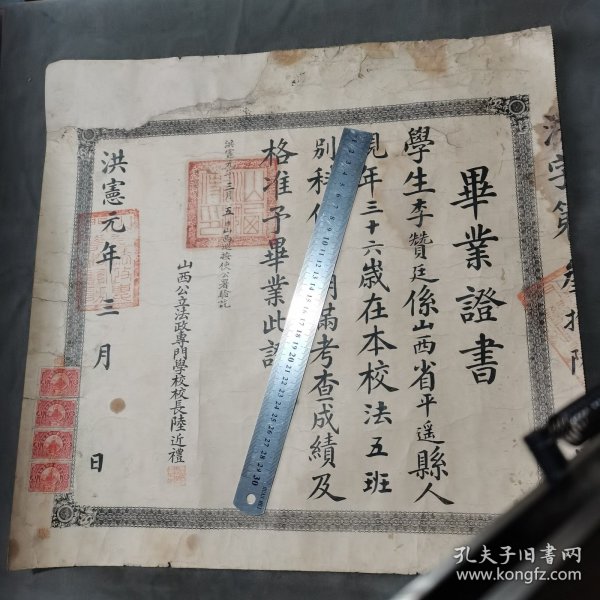 畢業證書
學生李贊廷係山西省平遥縣人
現年三十六歲在本校法五班
別科 滿考查成績及
格准予畢業此證
洪憲元年三月五 山西巡按使公署驗訖
山西公立法政專門學校校長陸近禮
洪憲元年三月 日
字第
孔夫子旧书网
www.kongfz.com